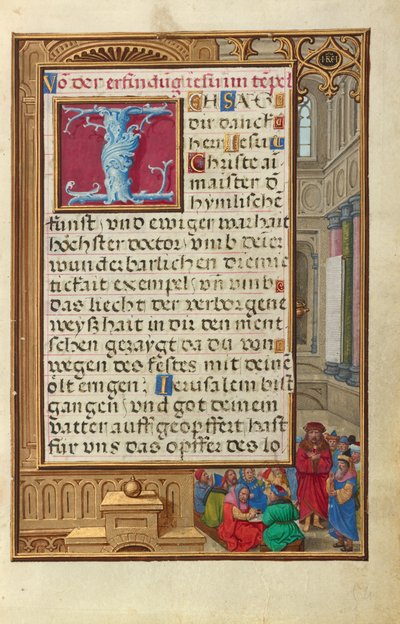 Võ der erfindũg iesu im tẽpel
ICH SAG
dir danck
herr Iesu
Christe ai᷉
maister d᷉
hymlische
kunst, vnd ewiger warhait
höchster doctor, vmb deier
wunderbarlichen diemie
tickait exempel, vn vmb
das liecht der verborgene
weyßhait in dir den ment
schen gezaygt da du von
wegen des festes mit deinẽ
olt emigen: Ierusalem bist
gangen, vnd got deinem
vatter auff geopffert hast
für vns das opffer des lo